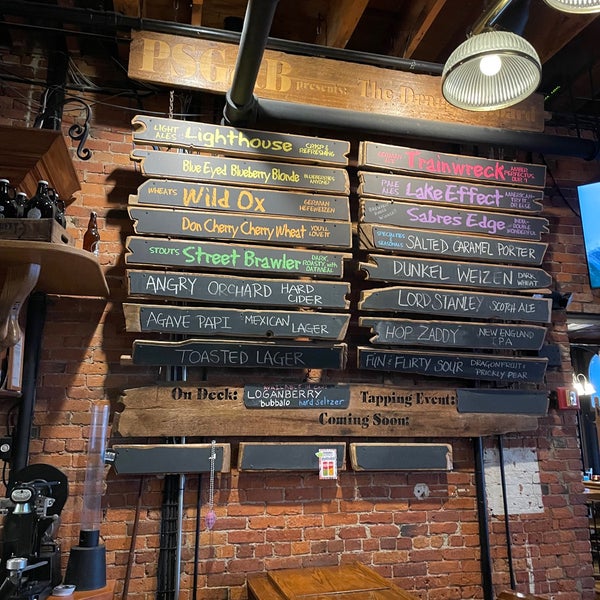 PSG&B presents: The Draught Board
LIGHT ALES Lighthouse CRISP & REFRESHING
Blue Eyed Blueberry Blonde BLUEBERRIES ANYONE?
WHEAT'S Wild Ox GERMAN HEFEWEIZEN
Don Cherry Cherry Wheat YOU'LL LOVE IT
STOUTS Street Brawler DARK, ROASTY, with OATMEAL
ANGRY ORCHARD HARD CIDER
AGAVE PAPI "MEXICAN LAGER"
TOASTED LAGER
Trainwreck AMBER
PALE ALES Lake Effect AMERICAN-STYLE
Sabres Edge DOUBLE
SPECIALTIES & SEASONALS SALTED CARAMEL PORTER
DUNKEL WEIZEN DARK WHEAT
LORD STANLEY SCOTCH ALE
HOP ZADDY NEW ENGLAND IPA
FUN & FLIRTY SOUR DRAGONFRUIT & PRICKLY PEAR
On Deck: LOGANBERRY
bubbalo hard seltzer
Tapping Event:
Coming Soon: